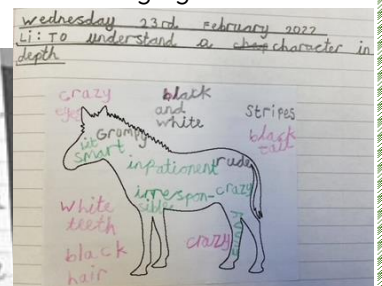 Wednesday 23rd February 2022
Li: To understand a character in
depth
crazy
eyes
black
and
white
Stripes
black
tail
Grumpy
smart
inpationent
rude
irrespon-
sible
crazy
White
teeth
black
hair
crazy